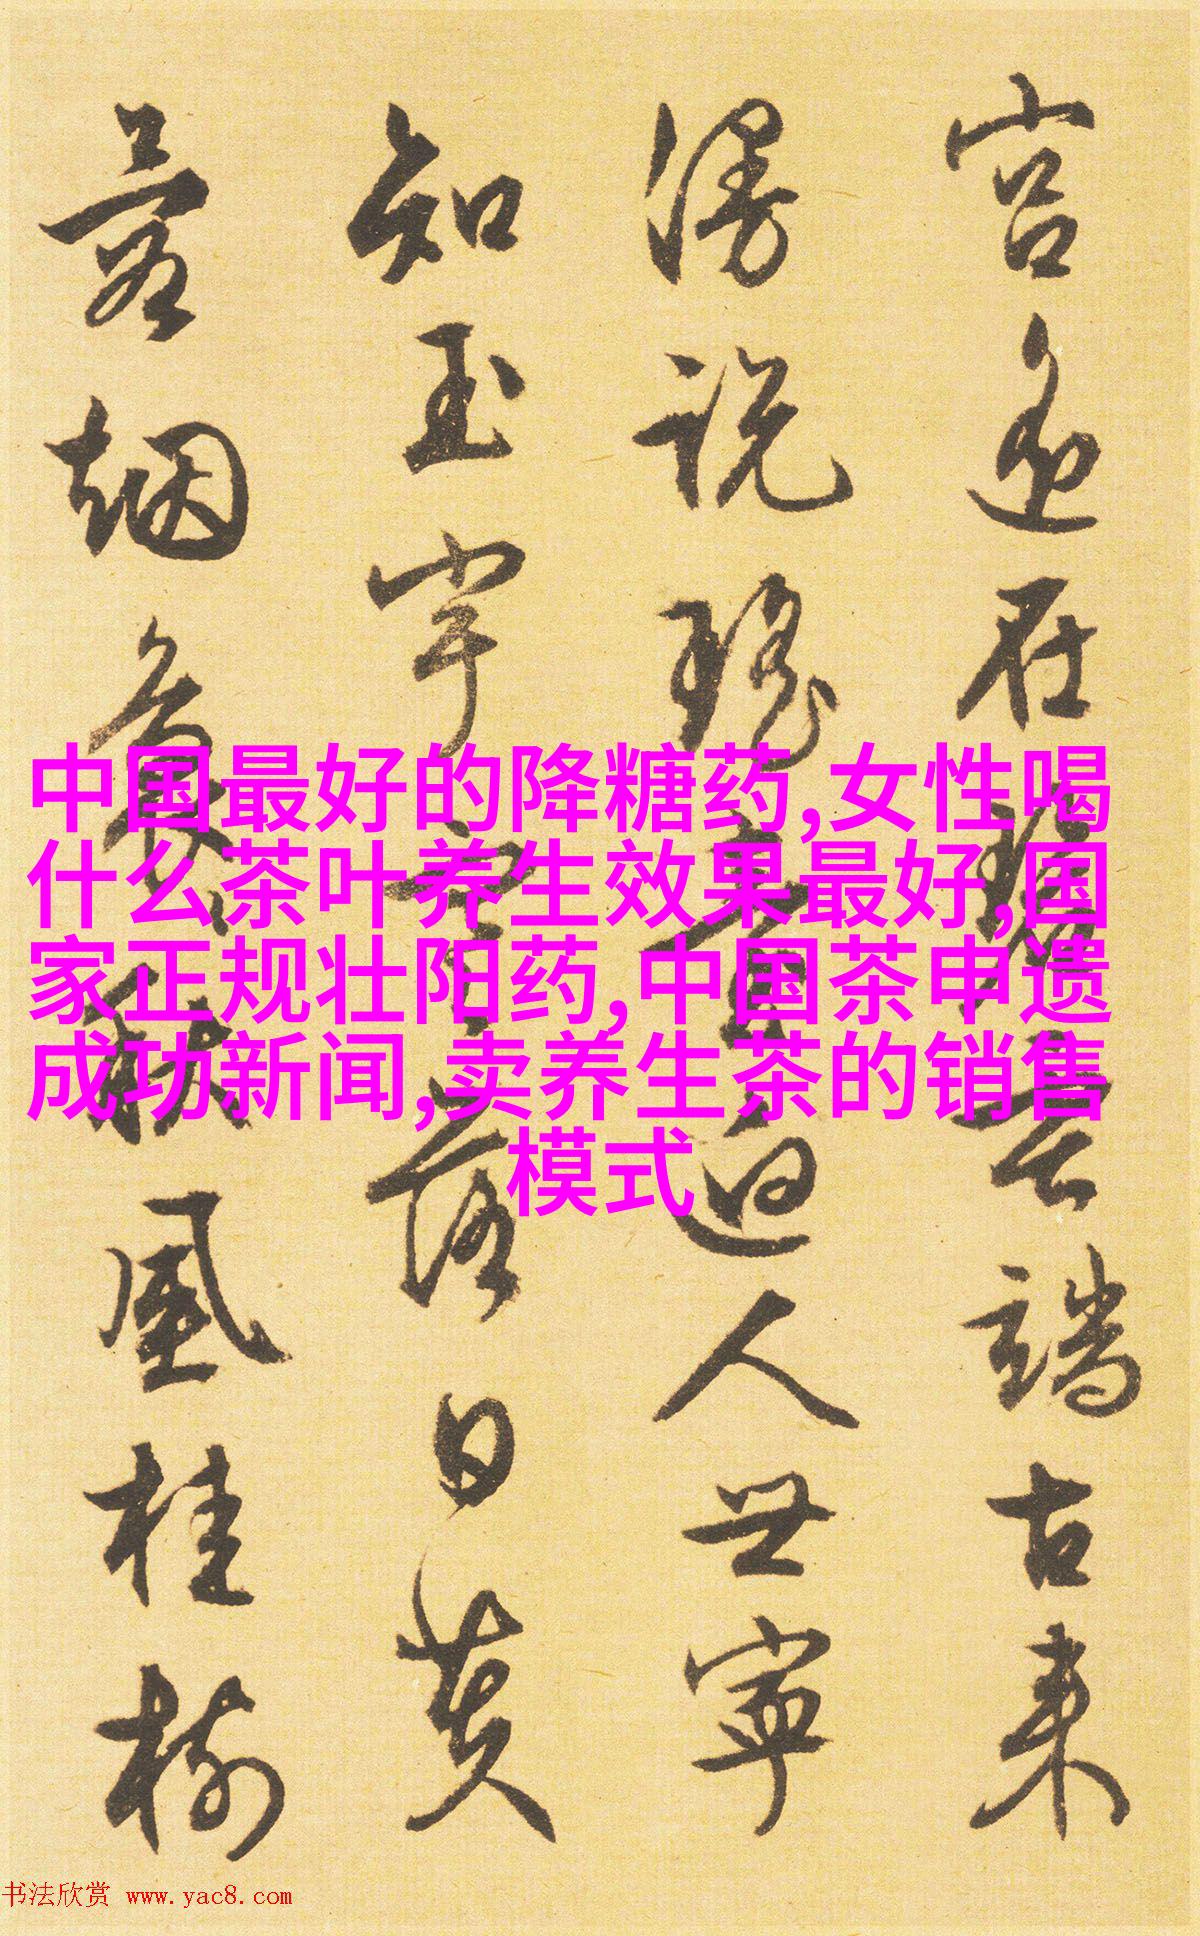 宮遥在碧雲端古来
漫説瑶臺迥人世寧
知玉宇落日黄
烟秋風桂樹
中国最好的降糖药,女性喝
什么茶叶养生效果最好,国
家正规壮阳药,中国茶申遗
成功新闻,卖养生茶的销售
模式
书法欣赏 www.yac8.com